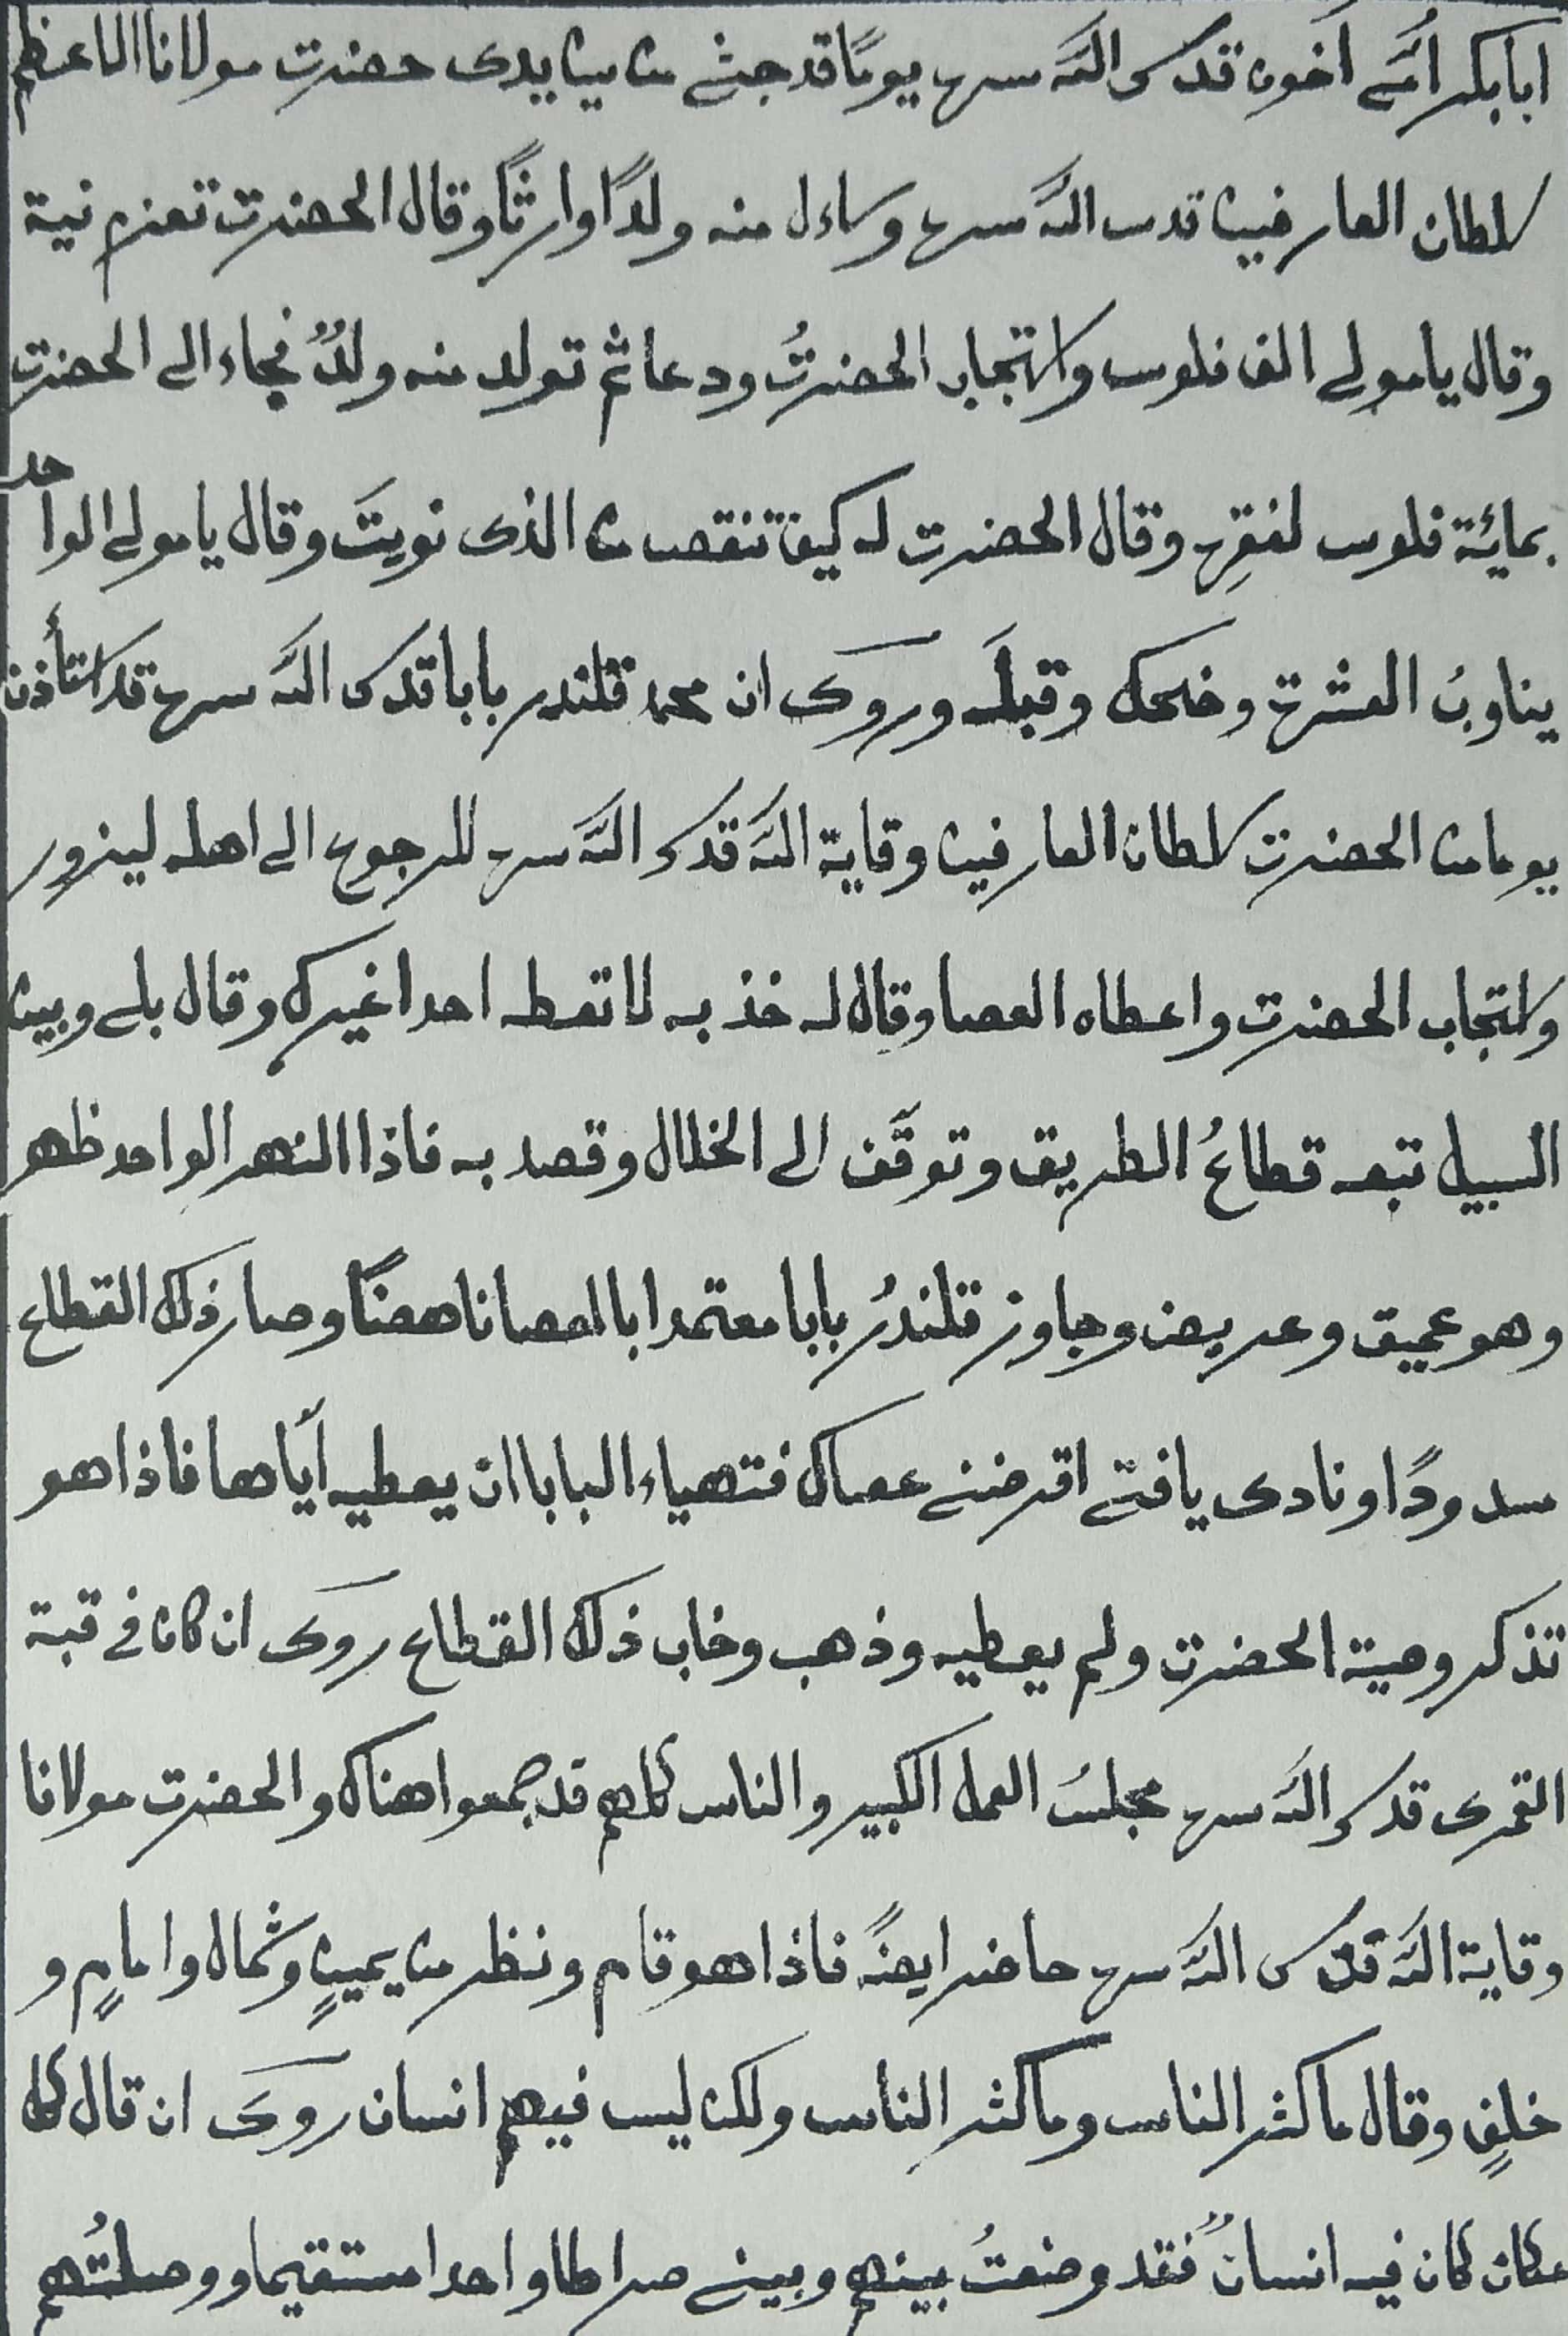 ابابكر أمّى آخون قدس الله سره يومًا قد جثى من بين يدى حضرت مولانا الاعظم
سلطان العارفين قدس الله سره وساءل منه ولدًا وارثًا وقال الحضرت تعزم نية
وقال يا مولى الف فلوس واستجاب الحضرتُ ودعا ثم تولد منه ولدٌ فجاء الى الحضرت
بمائة فلوس لفقرِه وقال الحضرت له كيف تنقص من الذى نويتَ وقال يا مولى الواحد
يناوبُ العشرة وضحك وقبلَه وروى ان محمد قلندر بابا قدس الله سره قد استأذن
يوما من الحضرت سلطان العارفين وقاية الله قدس الله سره للرجوع الى اهله ليزور
واستجاب الحضرت واعطاه العصا وقال له خذ به لا تعطه احدا غيرك وقال بلى وبين
السبيل تبعه قطاعُ الطريق وتوقَّف الى الخلال وقصد به فاذا النهر الواحد ظهر
وهو عميق وعريض وجاوز قلندرُ بابا معتمدا بالعصا ناهضًا وصار ذلك القطاع
سدودًا ونادى يا فتى اقرضنى عصاك فتهياء البابا ان يعطيه أياها فاذا هو
تذكر وصية الحضرت ولم يعطيه وذهب وخاب ذلك القطاع روى ان كان فى قبة
القمرى قدس الله سره مجلسُ العمل الكبير والناس كلهم قد جمعوا هناك والحضرت مولانا
وقاية الله قدّس الله سره حاضر ايضًا فاذا هو قام ونظر من يمينٍ وشمال وامامٍ و
خلفٍ وقال ما كثر الناس وما كثر الناس ولكن ليس فيهم انسان روى ان قال كل
مكان كان فيه انسانٌ فقد وضعتُ بينهم وبينى صراطا واحدا مستقيما ووصلتُهم